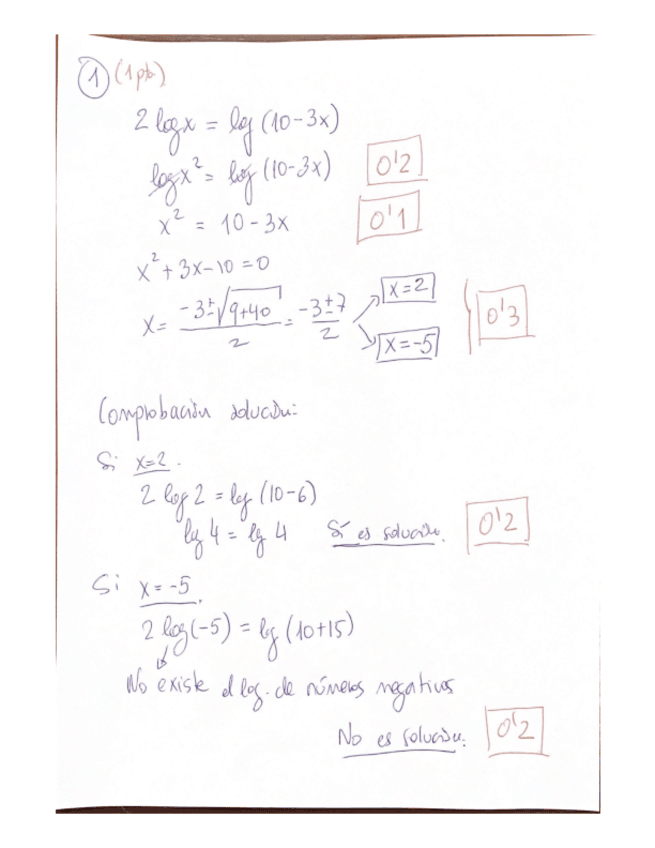 1 (1 pto)
2 log x = log (10-3x)
log x² = log (10-3x) 0'2
x² = 10-3x 0'1
x² + 3x-10 = 0
x = (-3±√(9+40))/2 = (-3±7)/2 x=2 x=-5 0'3
Comprobación solución:
Si x=2.
2 log 2 = log (10-6)
log 4 = log 4 Sí es solución. 0'2
Si x=-5.
2 log(-5) = log (10+15)
No existe el log. de números negativos
No es solución. 0'2